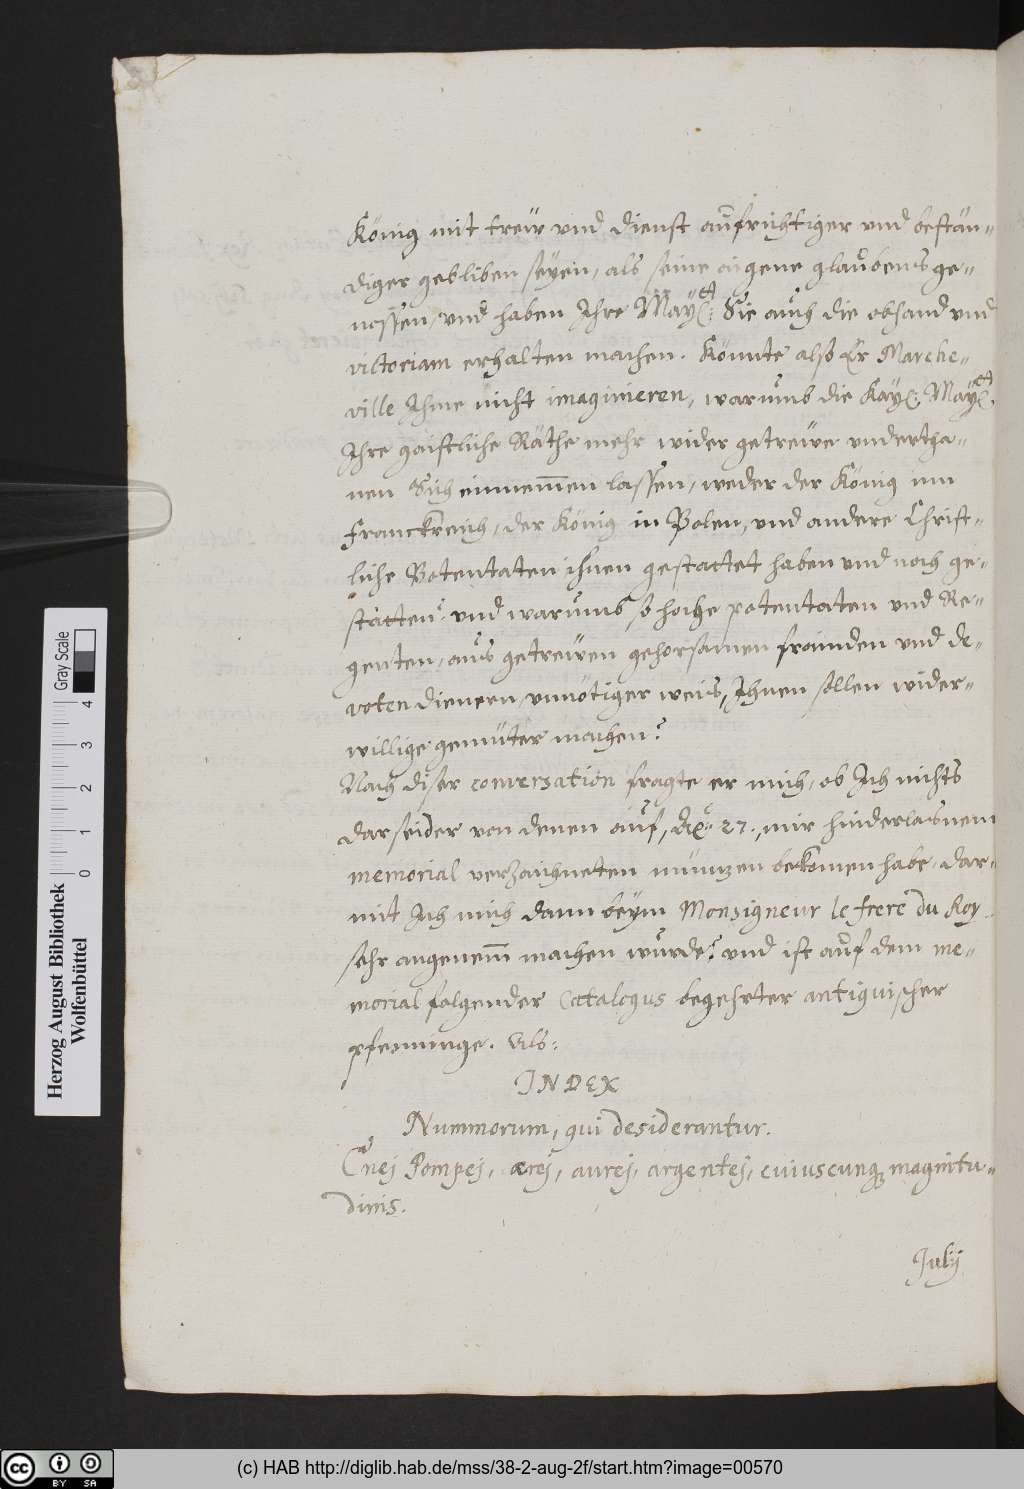 König mit trew vnd dienst aufrichtiger vnd bestän-
diger gebliben seyen, als seine aigene glaubensge-
nossen, vnd haben Ihre May: Sie auch die obhand vnd
victoriam erhalten machen. Könnte also Er Marche-
ville Ihme nicht imaginieren, warumb die Kay: May:
Ihre gaistliche Räthe mehr wider getrewe vndertha-
nen Sich einnemen lassen, weder der König inn
Franckreich, der König in Polen, vnd andere Christ-
liche Potentaten ihnen gestattet haben vnd noch ge-
statten? vnd warumb so hoche potentaten vnd Re-
genten, aus getrewen gehorsamen frainden vnd de-
voten dienern, vnnötiger weis, Ihnen sollen wider-
willige gemüter machen?
Nach diser conversation fragte er mich, ob Ich nichts
darseider von denen auf, 27., mir hinderlasnem
memorial verzaichneten münzen bekomen habe, dar-
mit Ich mich dann beym Monsigneur le frere du Roy
sehr angenem machen wurde? vnd ist auf dem me-
morial folgender Catalogus begehrter antiquischer
pfenninge. Als:
INDEX
Nummorum, qui desiderantur.
Cnej Pompej, ærej, aurej, argentej, cuiuscunq magnitu-
dinis.
Julij
Herzog August Bibliothek
Wolfenbüttel
0 1 2 3 4
Gray Scale
cc BY SA
(c) HAB http://diglib.hab.de/mss/38-2-aug-2f/start.htm?image=00570